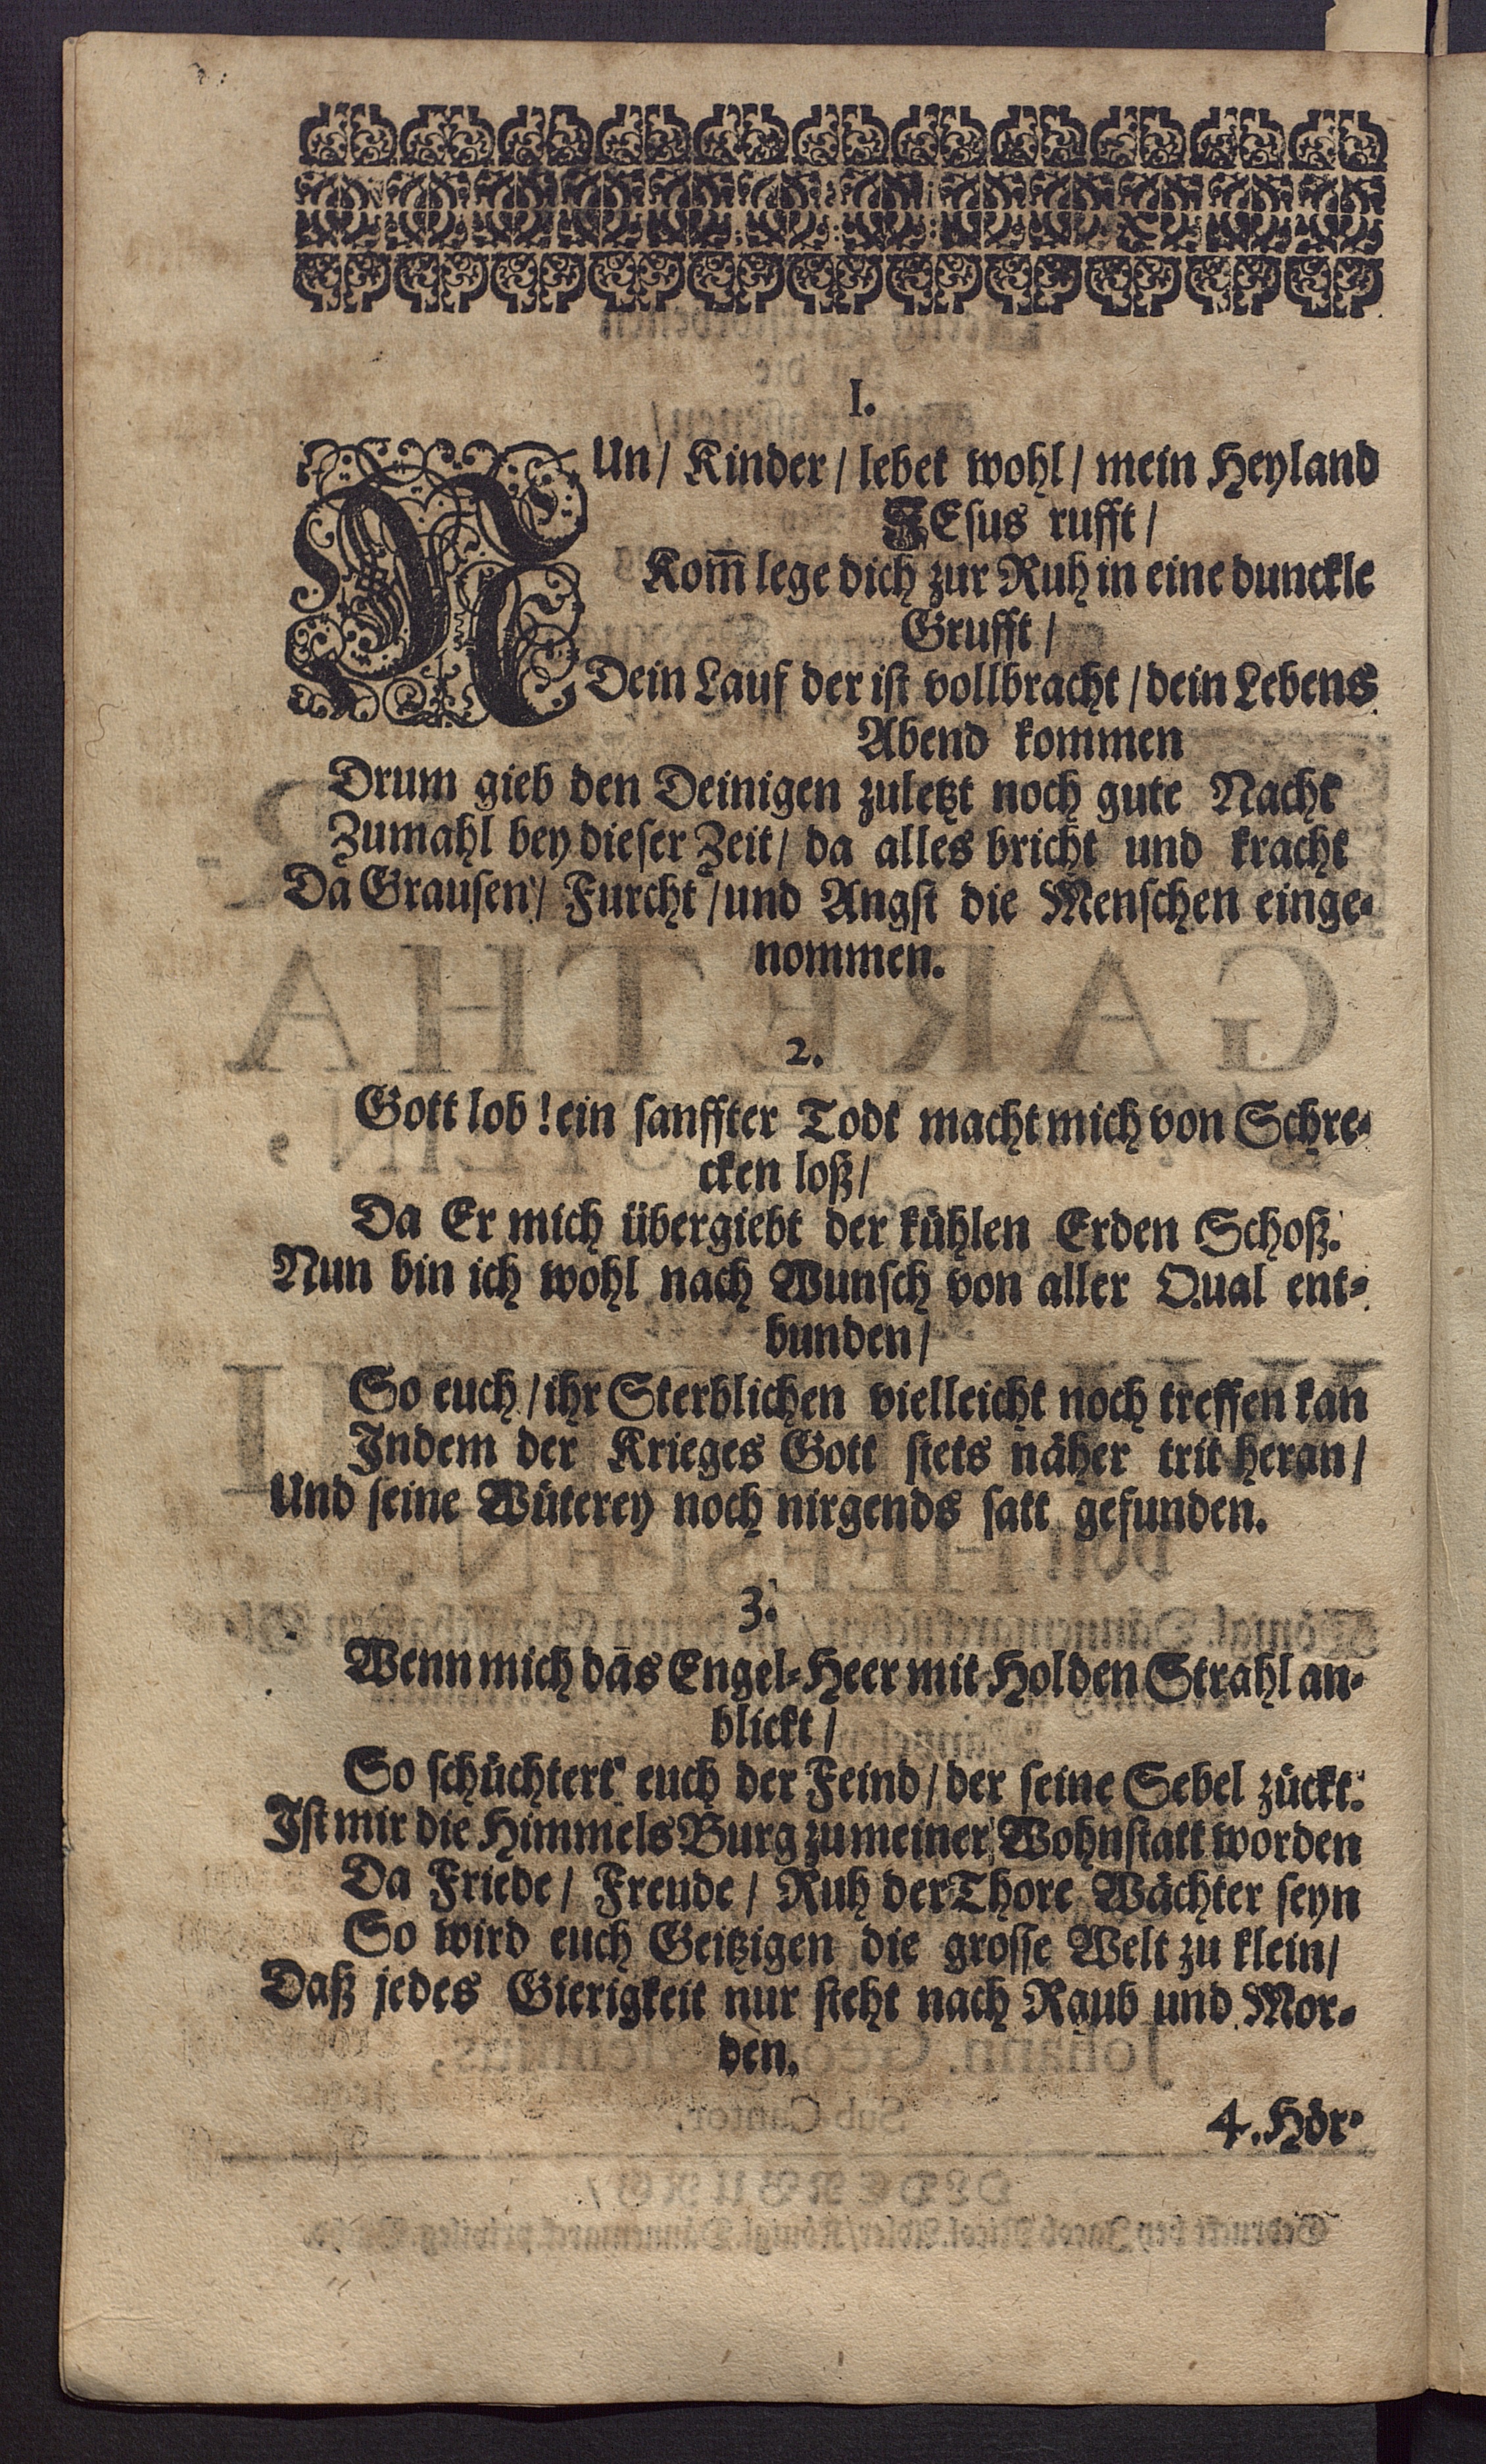 I.
NUn/ Kinder/ lebet wohl/ mein Heyland
JEsus rufft/
Kom̄ lege dich zur Ruh in eine dunckle
Grufft/
Dein Lauf der ist vollbracht/ dein Lebens
Abend kommen
Drum gieb den Deinigen zuletzt noch gute Nacht
Zumahl bey dieser Zeit/ da alles bricht und kracht
Da Grausen/ Furcht/ und Angst die Menschen einge-
nommen.
2.
Gott lob! ein sanffter Todt macht mich von Schre-
cken loß/
Da Er mich übergiebt der kühlen Erden Schoß.
Nun bin ich wohl nach Wunsch von aller Qual ent-
bunden/
So euch/ ihr Sterblichen vielleicht noch treffen kan
Indem der Krieges Gott stets näher trit heran/
Und seine Wüterey noch nirgends satt gefunden.
3.
Wenn mich das Engel-Heer mit Holden Strahl an-
blickt/
So schüchtert euch der Feind/ der seine Sebel zückt.
Ist mir die Himmels Burg zu meiner Wohnstatt worden
Da Friede/ Freude/ Ruh der Thore Wächter seyn
So wird euch Geitzigen die grosse Welt zu klein/
Daß jedes Gierigkeit nur steht nach Raub und Mor-
den.
4. Hör-